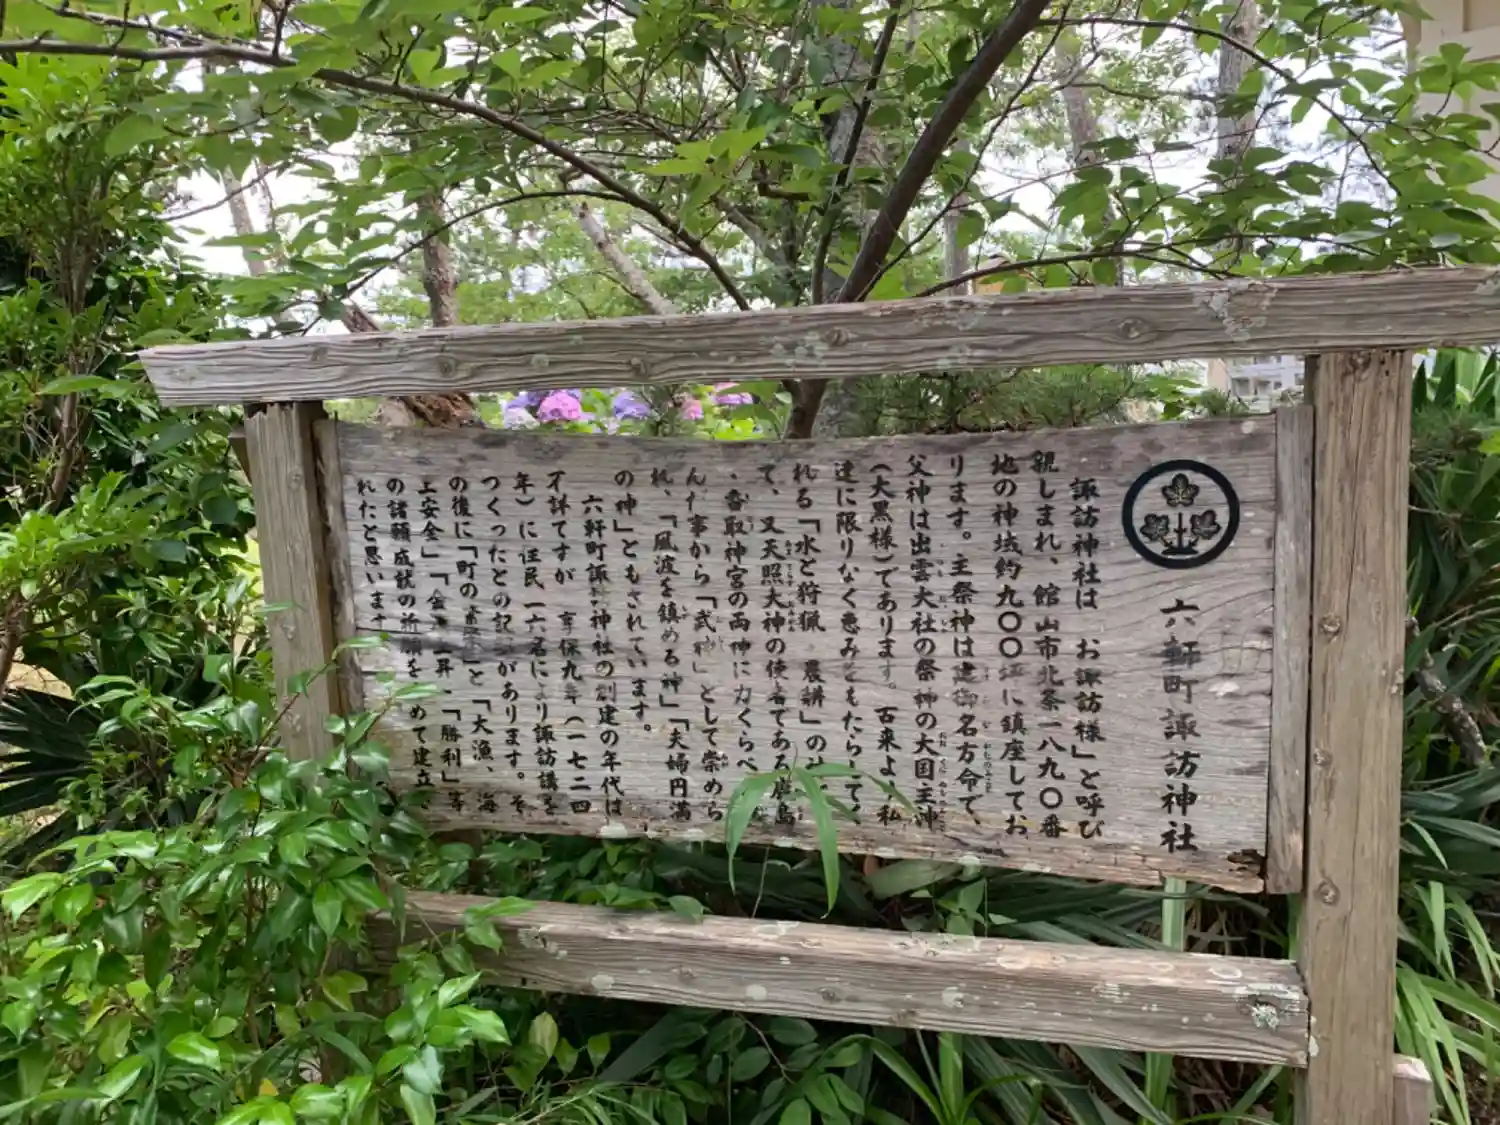 六軒町諏訪神社
諏訪神社は お諏訪様」と呼び
親しまれ、館山市北条一八九〇番
地の神域約九〇〇坪に鎮座してお
ります。主祭神は建御名方命で、
父神は出雲大社の祭神の大国主神
(大黒様)であります。古来より私
達に限りなく恵みをもたらして
れる「水と狩猟 農耕」の
て、又天照大神の使者である鹿島
、香取神宮の両神に力くらべ
ん だ事から「武神」として崇めら
れ、「風波を鎮める神」「夫婦円満
の神」ともされています。
六軒町諏訪神社の創建の年代は
不詳ですが 享保九年(一七二四
年)に住民一六名により諏訪講を
つくったとの記 があります。そ
の後に「町の 」と「大漁、海
上安全」「 」「勝利」等
の諸願成就の祈願を めて建立
れたと思います